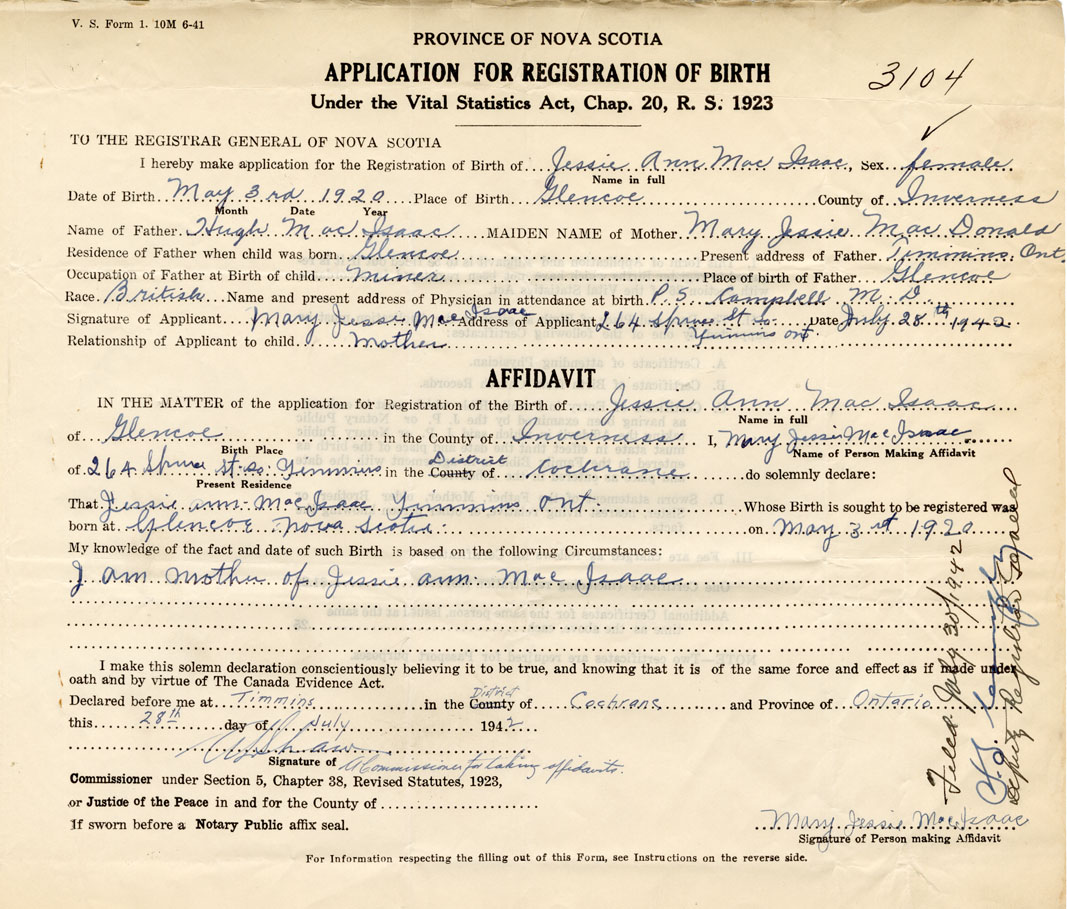 V. S. Form 1. 10M 6-41
PROVINCE OF NOVA SCOTIA
APPLICATION FOR REGISTRATION OF BIRTH
3104
Under the Vital Statistics Act, Chap. 20, R. S. 1923
TO THE REGISTRAR GENERAL OF NOVA SCOTIA
I hereby make application for the Registration of Birth of Jessie Ann Mac Isaac, Sex female
Name in full
Date of Birth May 3rd 1920 Place of Birth Glencoe County of Inverness
Month Date Year
Name of Father Hugh Mac Isaac MAIDEN NAME of Mother Mary Jessie Mac Donald
Residence of Father when child was born Glencoe Present address of Father Timmins Ont
Occupation of Father at Birth of child Miner Place of birth of Father Glencoe
Race British Name and present address of Physician in attendance at birth P.S. Campbell M.D.
Signature of Applicant Mary Jessie Mac Isaac Address of Applicant 264 Spruce St So Timmins Ont Date July 28th 1942
Relationship of Applicant to child Mother
AFFIDAVIT
IN THE MATTER of the application for Registration of the Birth of Jessie Ann Mac Isaac
Name in full
of Glencoe in the County of Inverness I, Mary Jessie Mac Isaac
Birth Place Name of Person Making Affidavit
of 264 Spruce St So Timmins in the County of District Cochrane do solemnly declare:
Present Residence
That Jessie ann Mac Isaac Timmins Ont Whose Birth is sought to be registered was
born at Glencoe Nova Scotia on May 3rd 1920
My knowledge of the fact and date of such Birth is based on the following Circumstances:
I am mother of Jessie ann Mac Isaac
I make this solemn declaration conscientiously believing it to be true, and knowing that it is of the same force and effect as if made under
oath and by virtue of The Canada Evidence Act.
Declared before me at Timmins in the County of District Cochrane and Province of Ontario
this 28th day of July 1942
Signature of A Commissioner for taking affidavits.
Commissioner under Section 5, Chapter 38, Revised Statutes, 1923,
or Justice of the Peace in and for the County of
If sworn before a Notary Public affix seal.
Mary Jessie Mac Isaac
Signature of Person making Affidavit
For Information respecting the filling out of this Form, see Instructions on the reverse side.
Filed July 30/1942
Deputy Registrar General